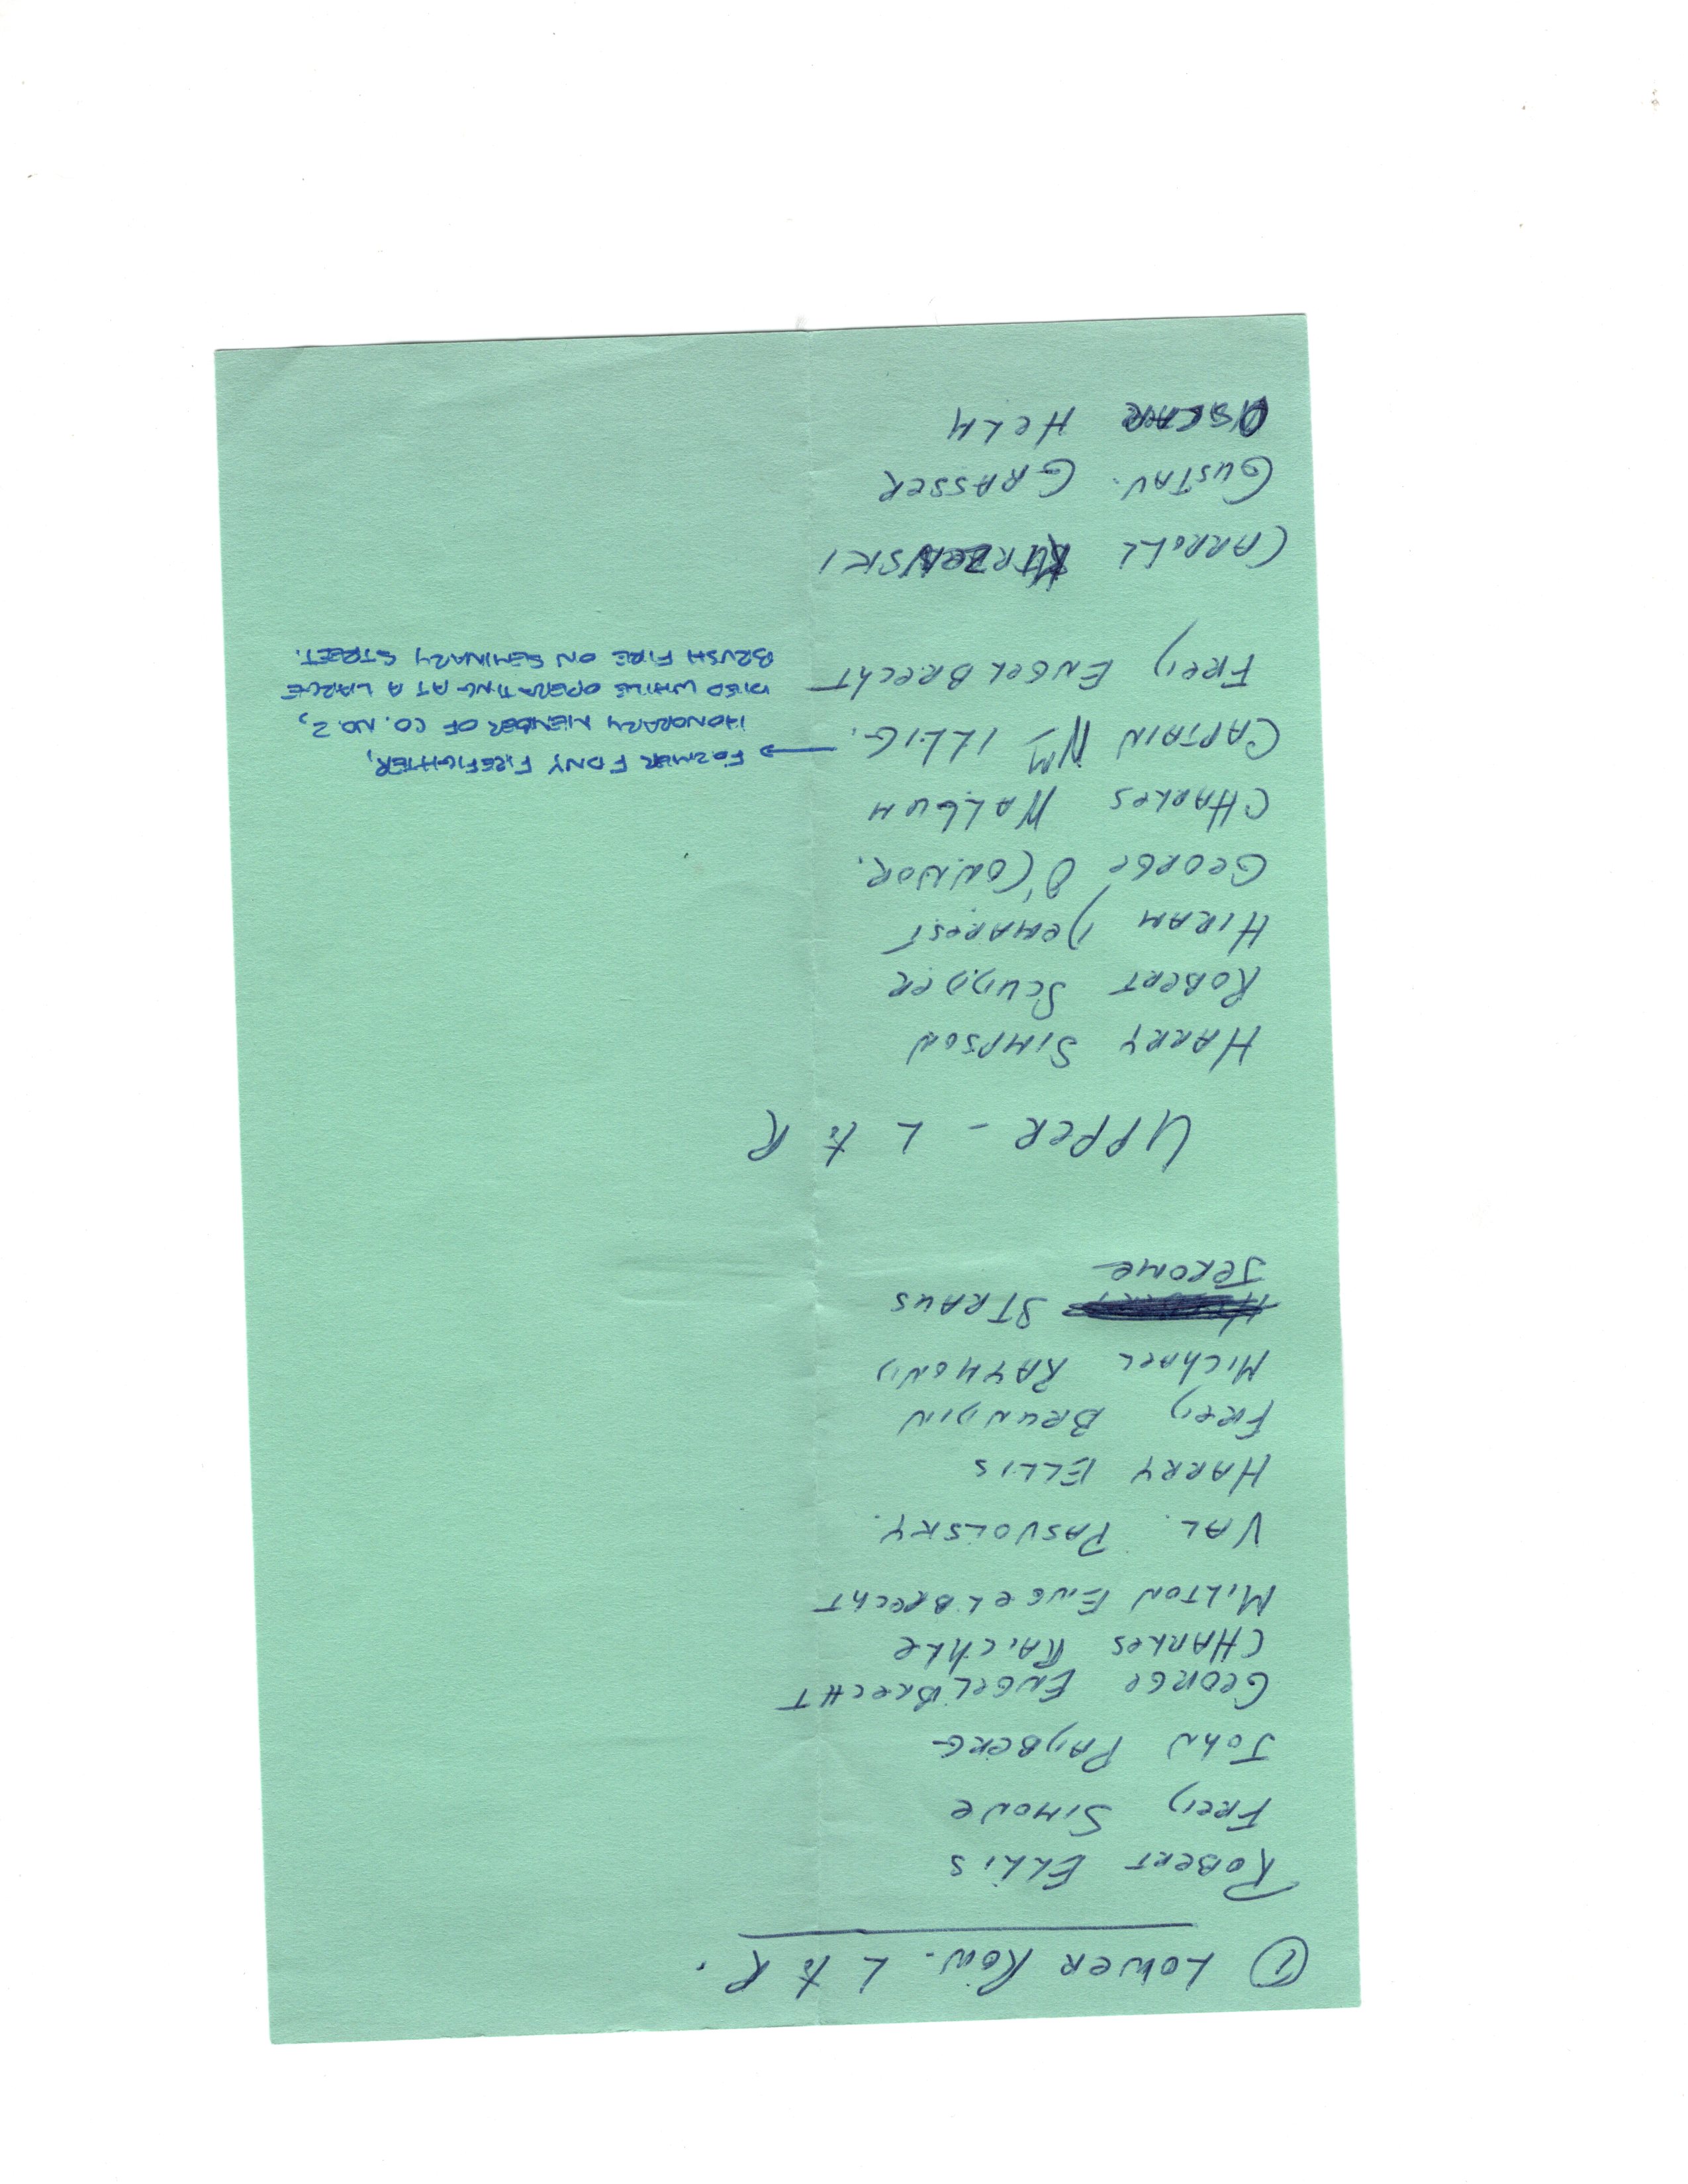 ① LOWER ROW. L to R.
ROBERT ELLIS
FRED SIMONE
JOHN RADBERG
GEORGE ENGELBRECHT
CHARLES RAICHLE
MILTON ENGELBRECHT
VAL. PASVOLSKY.
HARRY ELLIS
FRED BRUNDIN
MICHAEL RAYMOND
STRAUS
JEROME
UPPER - L to R
HARRY SIMPSON
ROBERT SCUDDER
HIRAM DEMAREST
GEORGE O'CONNOR.
CHARLES WALGUM
CAPTAIN WM ILLIG. → FORMER FDNY FIREFIGHTER,
HONORARY MEMBER OF CO. NO. 2,
DIED WHILE OPERATING AT A LARGE
BRUSH FIRE ON SEMINARY STREET.
FRED ENGELBRECHT
CARROLL
GUSTAV. GRASSER
OSCAR HELM